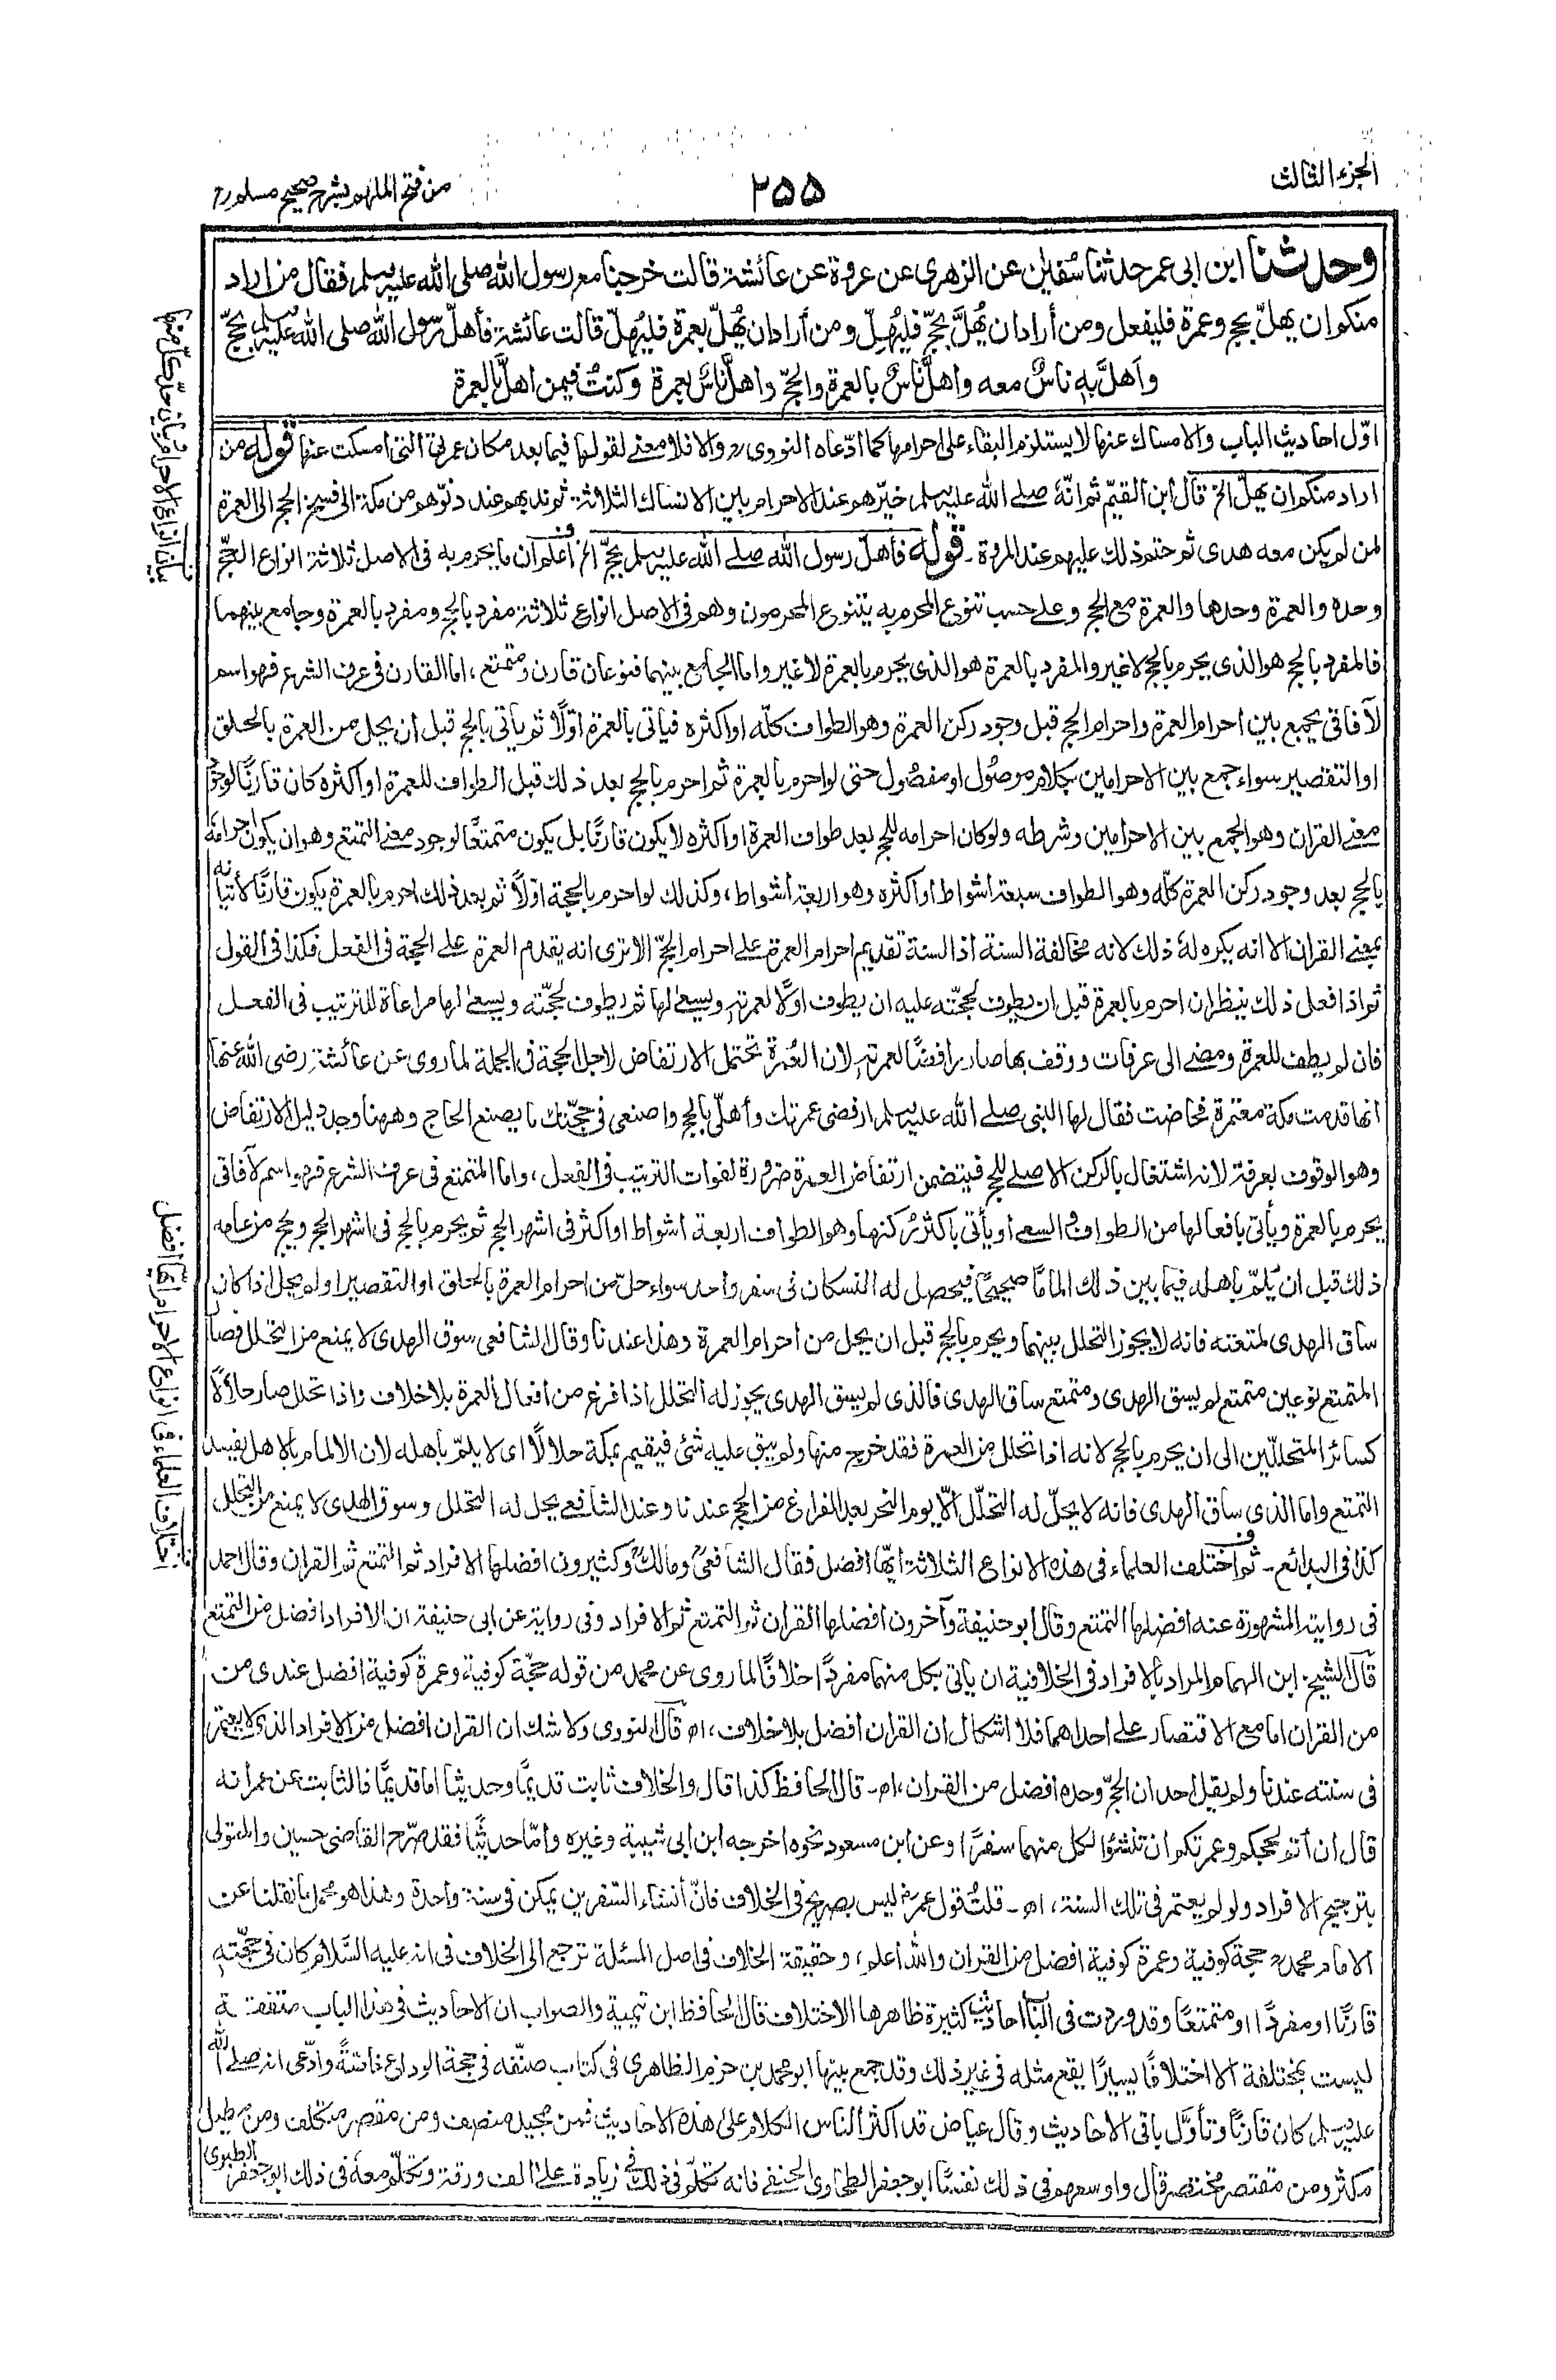 الجزء الثالث
٢٥٥
من فتح الملهم بشرح صحيح مسلم
وحدثنا ابن ابى عمر حدثنا سفين عن الزهرى عن عروة عن عائشة قالت خرجنا مع رسول الله صلى الله عليه وسلم فقال من اراد
منكم ان يهل بحج وعمرة فليفعل ومن أراد ان يُهلَّ بحجّ فليُهِلّ ومن أراد ان يُهلّ بعمرة فليُهلّ قالت عائشة فأهلّ رسول الله صلى الله عليه وسلم بحجّ
وأهلَّ به ناسٌ معه وأهلَّ ناسٌ بالعمرة والحجّ وأهلَّ ناسٌ بعمرة وكنتُ فيمن اهلَّ بالعمرة
اوّل احاديث الباب والامساك عنها لا يستلزم البقاء على احرامها كما ادّعاه النووى والا فلا معنى لقولها فيما بعد مكان عمرتى التى امسكت عنها قوله من
اراد منكم ان يهلّ الخ قال ابن القيّم ثم انّه صلى الله عليه وسلم خيّرهم عند الاحرام بين الانساك الثلاثة ثم ندبهم عند دنوّهم من مكة الى فسخ الحج الى العمرة
لمن لم يكن معه هدى ثم حتم ذلك عليهم عند المروة - قوله فأهلّ رسول الله صلى الله عليه وسلم بحجّ الخ أعلم ان ما يحرم به فى الاصل ثلاثة انواع الحجّ
وحده والعمرة وحدها والعمرة مع الحج وعلى حسب تنوع المحرم به يتنوع المحرمون وهم فى الاصل انواع ثلاثة مفرد بالحج ومفرد بالعمرة وجامع بينهما
فالمفرد بالحج هو الذى يحرم بالحج لا غير والمفرد بالعمرة هو الذى يحرم بالعمرة لا غير واما الجامع بينهما فنوعان قارن ومتمتع، اما القارن فى عرف الشرع فهو اسم
لآفاقى يجمع بين احرام العمرة واحرام الحج قبل وجود ركن العمرة وهو الطواف كلّه او اكثره فيأتى بالعمرة اوّلًا ثم يأتى بالحج قبل أن يحل من العمرة بالحلق
او التقصير سواء جمع بين الاحرامين بكلام موصول او مفصول حتى لو احرم بالعمرة ثم احرم بالحج بعد ذلك قبل الطواف للعمرة او اكثره كان قارنًا لوجود
معنى القران وهو الجمع بين الاحرامين وشرطه ولو كان احرامه للحج بعد طواف العمرة او اكثره لا يكون قارنًا بل يكون متمتعًا لوجود معنى التمتع وهو ان يكون احرامه
بالحج بعد وجود ركن العمرة كلّه وهو الطواف سبعة اشواط أو اكثره وهو اربعة أشواط، وكذلك لو احرم بالحجة اوّلًا ثم بعد ذلك احرم بالعمرة يكون قارنًا لأتيانه
بمعنى القران الا انه يكره له ذلك لانه مخالفة السنة اذ السنة تقديم احرام العمرة على احرام الحجّ الا ترى انه يقدم العمرة على الحجة فى الفعل فكذا فى القول
ثم اذا فعل ذلك ينظر ان احرم بالعمرة قبل ان يطوف لحجّته عليه ان يطوف اوّلًا لعمرته ويسعى لها ثم يطوف لحجّته ويسعى لها مراعاة للترتيب فى الفعل
فان لم يطف للعمرة ومضى الى عرفات ووقف بها صار رافضًا لعمرته لان العُمرة تحتمل الارتفاض لاجل الحجة فى الجملة لما روى عن عائشة رضى الله عنها
انها قدمت مكة معتمرة فحاضت فقال لها النبى صلى الله عليه وسلم ارفضى عمرتك وأهلّى بالحج واصنعى فى حجّتك ما يصنع الحاج وههنا وجد دليل الارتفاض
وهو الوقوف بعرفة لانه اشتغال بالركن الاصلى للحج فيتضمن ارتفاض العمرة ضرورة لفوات الترتيب فى الفعل، واما المتمتع فى عرف الشرع فهو اسم لآفاقى
يحرم بالعمرة ويأتى بافعالها من الطواف والسعى أو يأتى باكثر ركنها وهو الطواف اربعة اشواط او اكثر فى اشهر الحج ثم يحرم بالحج فى اشهر الحج ويحج من عامه
ذلك قبل ان يُلمّ باهله فيما بين ذلك المامًا صحيحًا فيحصل له النسكان فى سفر واحد سواء حلّ من احرام العمرة بالحلق او التقصير او لم يحل اذا كان
ساق الهدى لمتعته فانه لا يجوز التحلل بينهما ويحرم بالحج قبل ان يحل من احرام العمرة وهذا عندنا وقال الشافعى سوق الهدى لا يمنع من التحلل فصار
المتمتع نوعين متمتع لم يسق الهدى ومتمتع ساق الهدى فالذى لم يسق الهدى يجوز له التحلل اذا فرغ من افعال العمرة بلا خلاف واذا تحلل صار حلالًا
كسائر المتحللين الى ان يحرم بالحج لانه اذا تحلل من العمرة فقد خرج منها ولم يبق عليه شئ فيقيم بمكة حلالًا اى لا يلمّ بأهله لان الالمام بالاهل يفسد
التمتع واما الذى ساق الهدى فانه لا يحلّ له التحلّل الّا يوم النحر بعد الفراغ من الحج عندنا وعند الشافعى يحل له التحلل وسوق الهدى لا يمنع من التحلل
كذا فى البدائع - ثم اختلف العلماء فى هذه الانواع الثلاثة ايّها افضل فقال الشافعى ومالك وكثيرون افضلها الافراد ثم التمتع ثم القران وقال احمد
فى روايته المشهورة عنه افضلها التمتع وقال ابو حنيفة وآخرون افضلها القران ثم التمتع ثم الافراد وفى رواية عن ابى حنيفة ان الافراد افضل من التمتع
قال الشيخ ابن الهمام المراد بالافراد فى الخلافية ان يأتى بكل منهما مفردًا خلافًا لما روى عن محمد من قوله حجّة كوفية وعمرة كوفية افضل عندى من
من القران اما مع الاقتصار على احداهما فلا اشكال ان القران افضل بلا خلاف، اه قال النووى ولا شك ان القران افضل من الافراد الذى لا يعتمر
فى سنته عندنا ولم يقل احد ان الحجّ وحده افضل من القران، اه - قال الحافظ كذا قال والخلاف ثابت قديمًا وحديثا اما قديمًا فالثابت عن عمر انه
قال ان أتم لحجكم وعمرتكم ان تنشؤا لكل منهما سفرًا وعن ابن مسعود نحوه اخرجه ابن ابى شيبة وغيره وامّا حديثًا فقد صرّح القاضى حسين والمتولى
بترجيح الافراد ولو لم يعتمر فى تلك السنة، اه - قلتُ قول عمر ليس بصريح فى الخلاف فانّ أنشاء السفرين يمكن فى سنة واحدة وهذا هو محمل ما نقلنا عن
الامام محمد حجة كوفية وعمرة كوفية افضل من القران والله أعلم، وحقيقة الخلاف فى اصل المسئلة ترجع الى الخلاف فى انه عليه السّلام كان فى حجّته
قارنًا او مفردًا او متمتعًا وقد وردت فى الباب احاديث كثيرة ظاهرها الاختلاف قال الحافظ ابن تيمية والصواب ان الاحاديث فى هذا الباب متفقة
ليست بمختلفة الا اختلافًا يسيرًا يقع مثله فى غير ذلك وقد جمع بينها ابو محمد بن حزم الظاهرى فى كتاب صنّفه فى حجة الوداع خاصّةً وادّعى انه صلى الله
عليه وسلم كان قارنًا وتأوّل باقى الاحاديث وقال عياض قد اكثر الناس الكلام على هذه الاحاديث فمن مجيد منصف ومن مقصر متكلف ومن مطيل
مكثر ومن مقتصر مختصر قال واوسعهم فى ذلك نفسًا ابو جعفر الطحاوى الحنفى فانه تكلّم فى ذلك فى زيادة على الف ورقة وتكلّم معه فى ذلك ابو جعفر الطبرى
بيان انواع الاحرام وبيان حدّ كلّ منها
اختلاف العلماء فى انواع الاحرام ايّها افضل